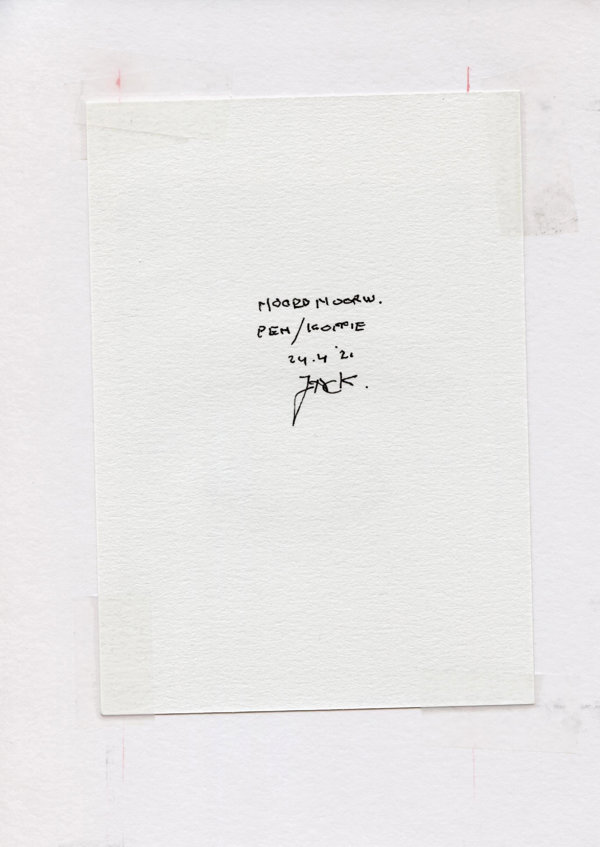 NOORD NOORW.
PEN/KOFFIE
24.4 '21
JACK.